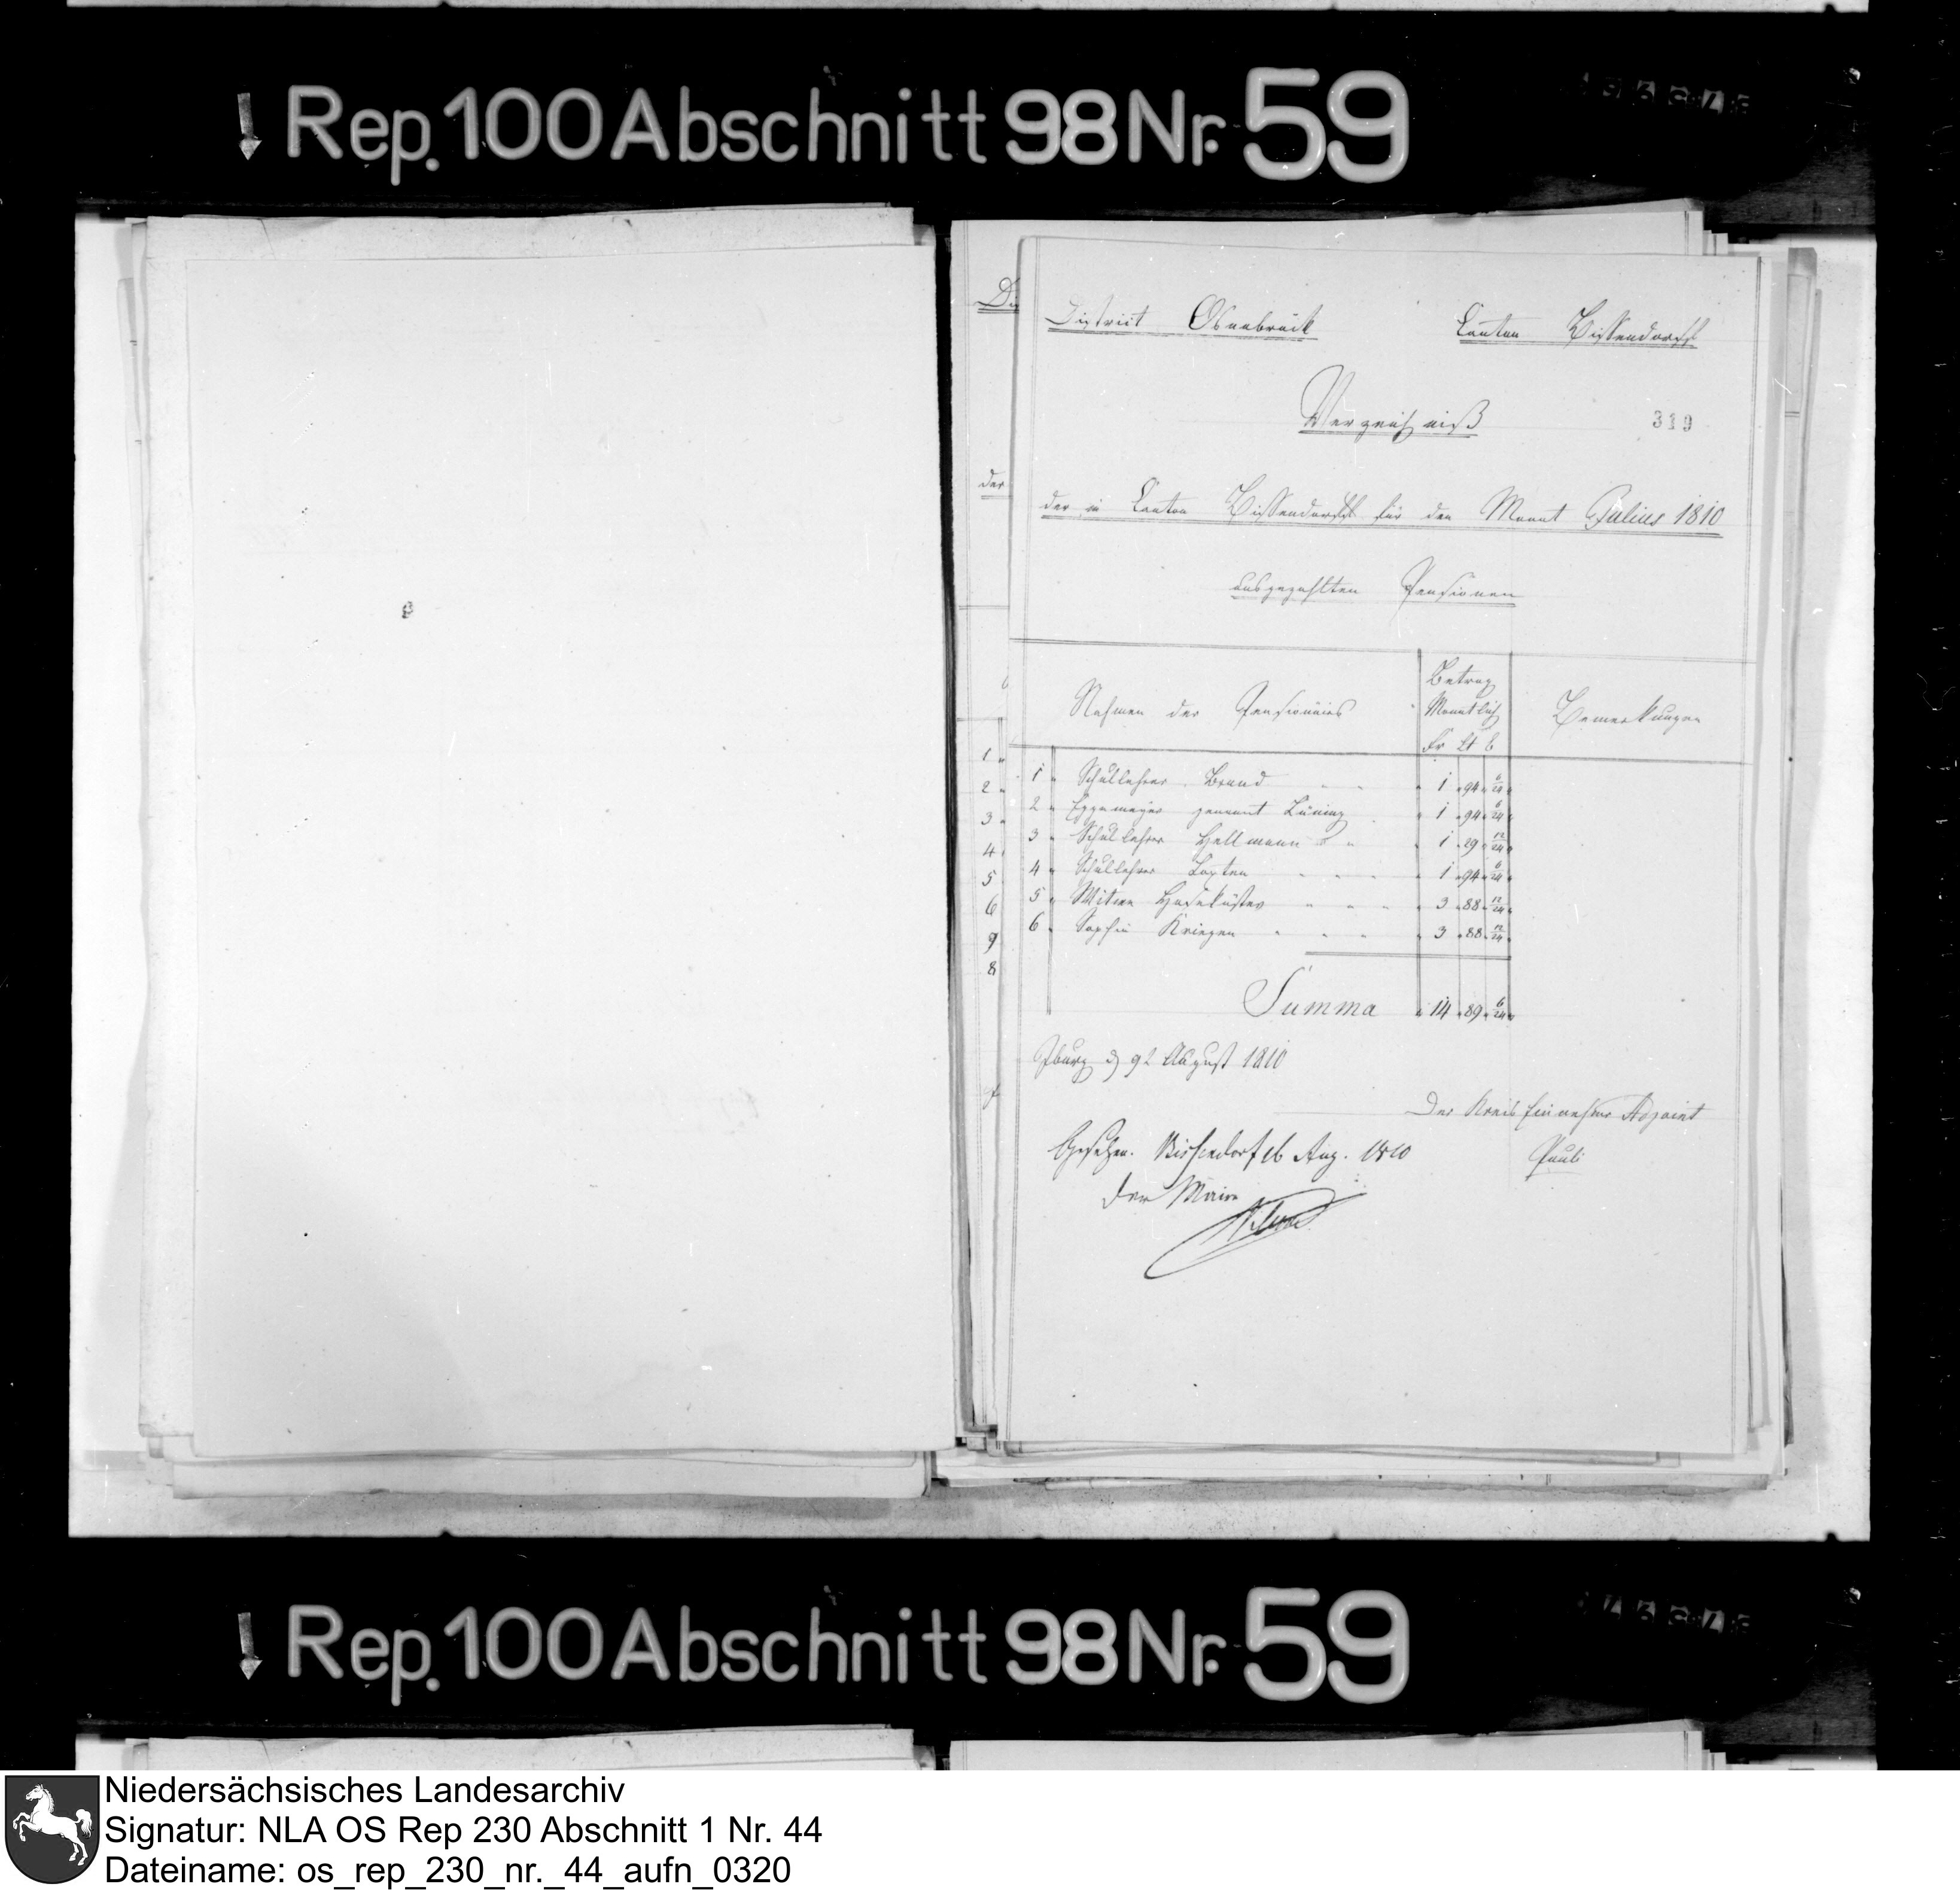 Rep. 100 Abschnitt 98 Nr. 59
District Osnabrück Canton Bissendorff
Verzeichniß
319
der in Canton Bissendorff für den Monat Julius 1810
ausgezahlten Pensionen
Nahmen der Pensionairs
Betrag
Monatlich
Bemerkungen
Fr Ct
1 Schullehrer Brand 1 94 6/24
2 Eggemeyer genannt Lüning 1 94 6/24
3 Schullehrer Hellmann 1 29 12/24
4 Schullehrer Loxten 1 94 6/24
5 Witwe 3 88 12/24
6 Sophie Kriegen 3 88 12/24
Summa 14 89 6/24
Iburg August 1810
Der Adjoint
Pauli
Gesehen. Bissendorf 16 Aug. 1810
Der Maire
der
1
2
3
4
5
6
9
8
Rep. 100 Abschnitt 98 Nr. 59
Niedersächsisches Landesarchiv
Signatur: NLA OS Rep 230 Abschnitt 1 Nr. 44
Dateiname: os_rep_230_nr._44_aufn_0320